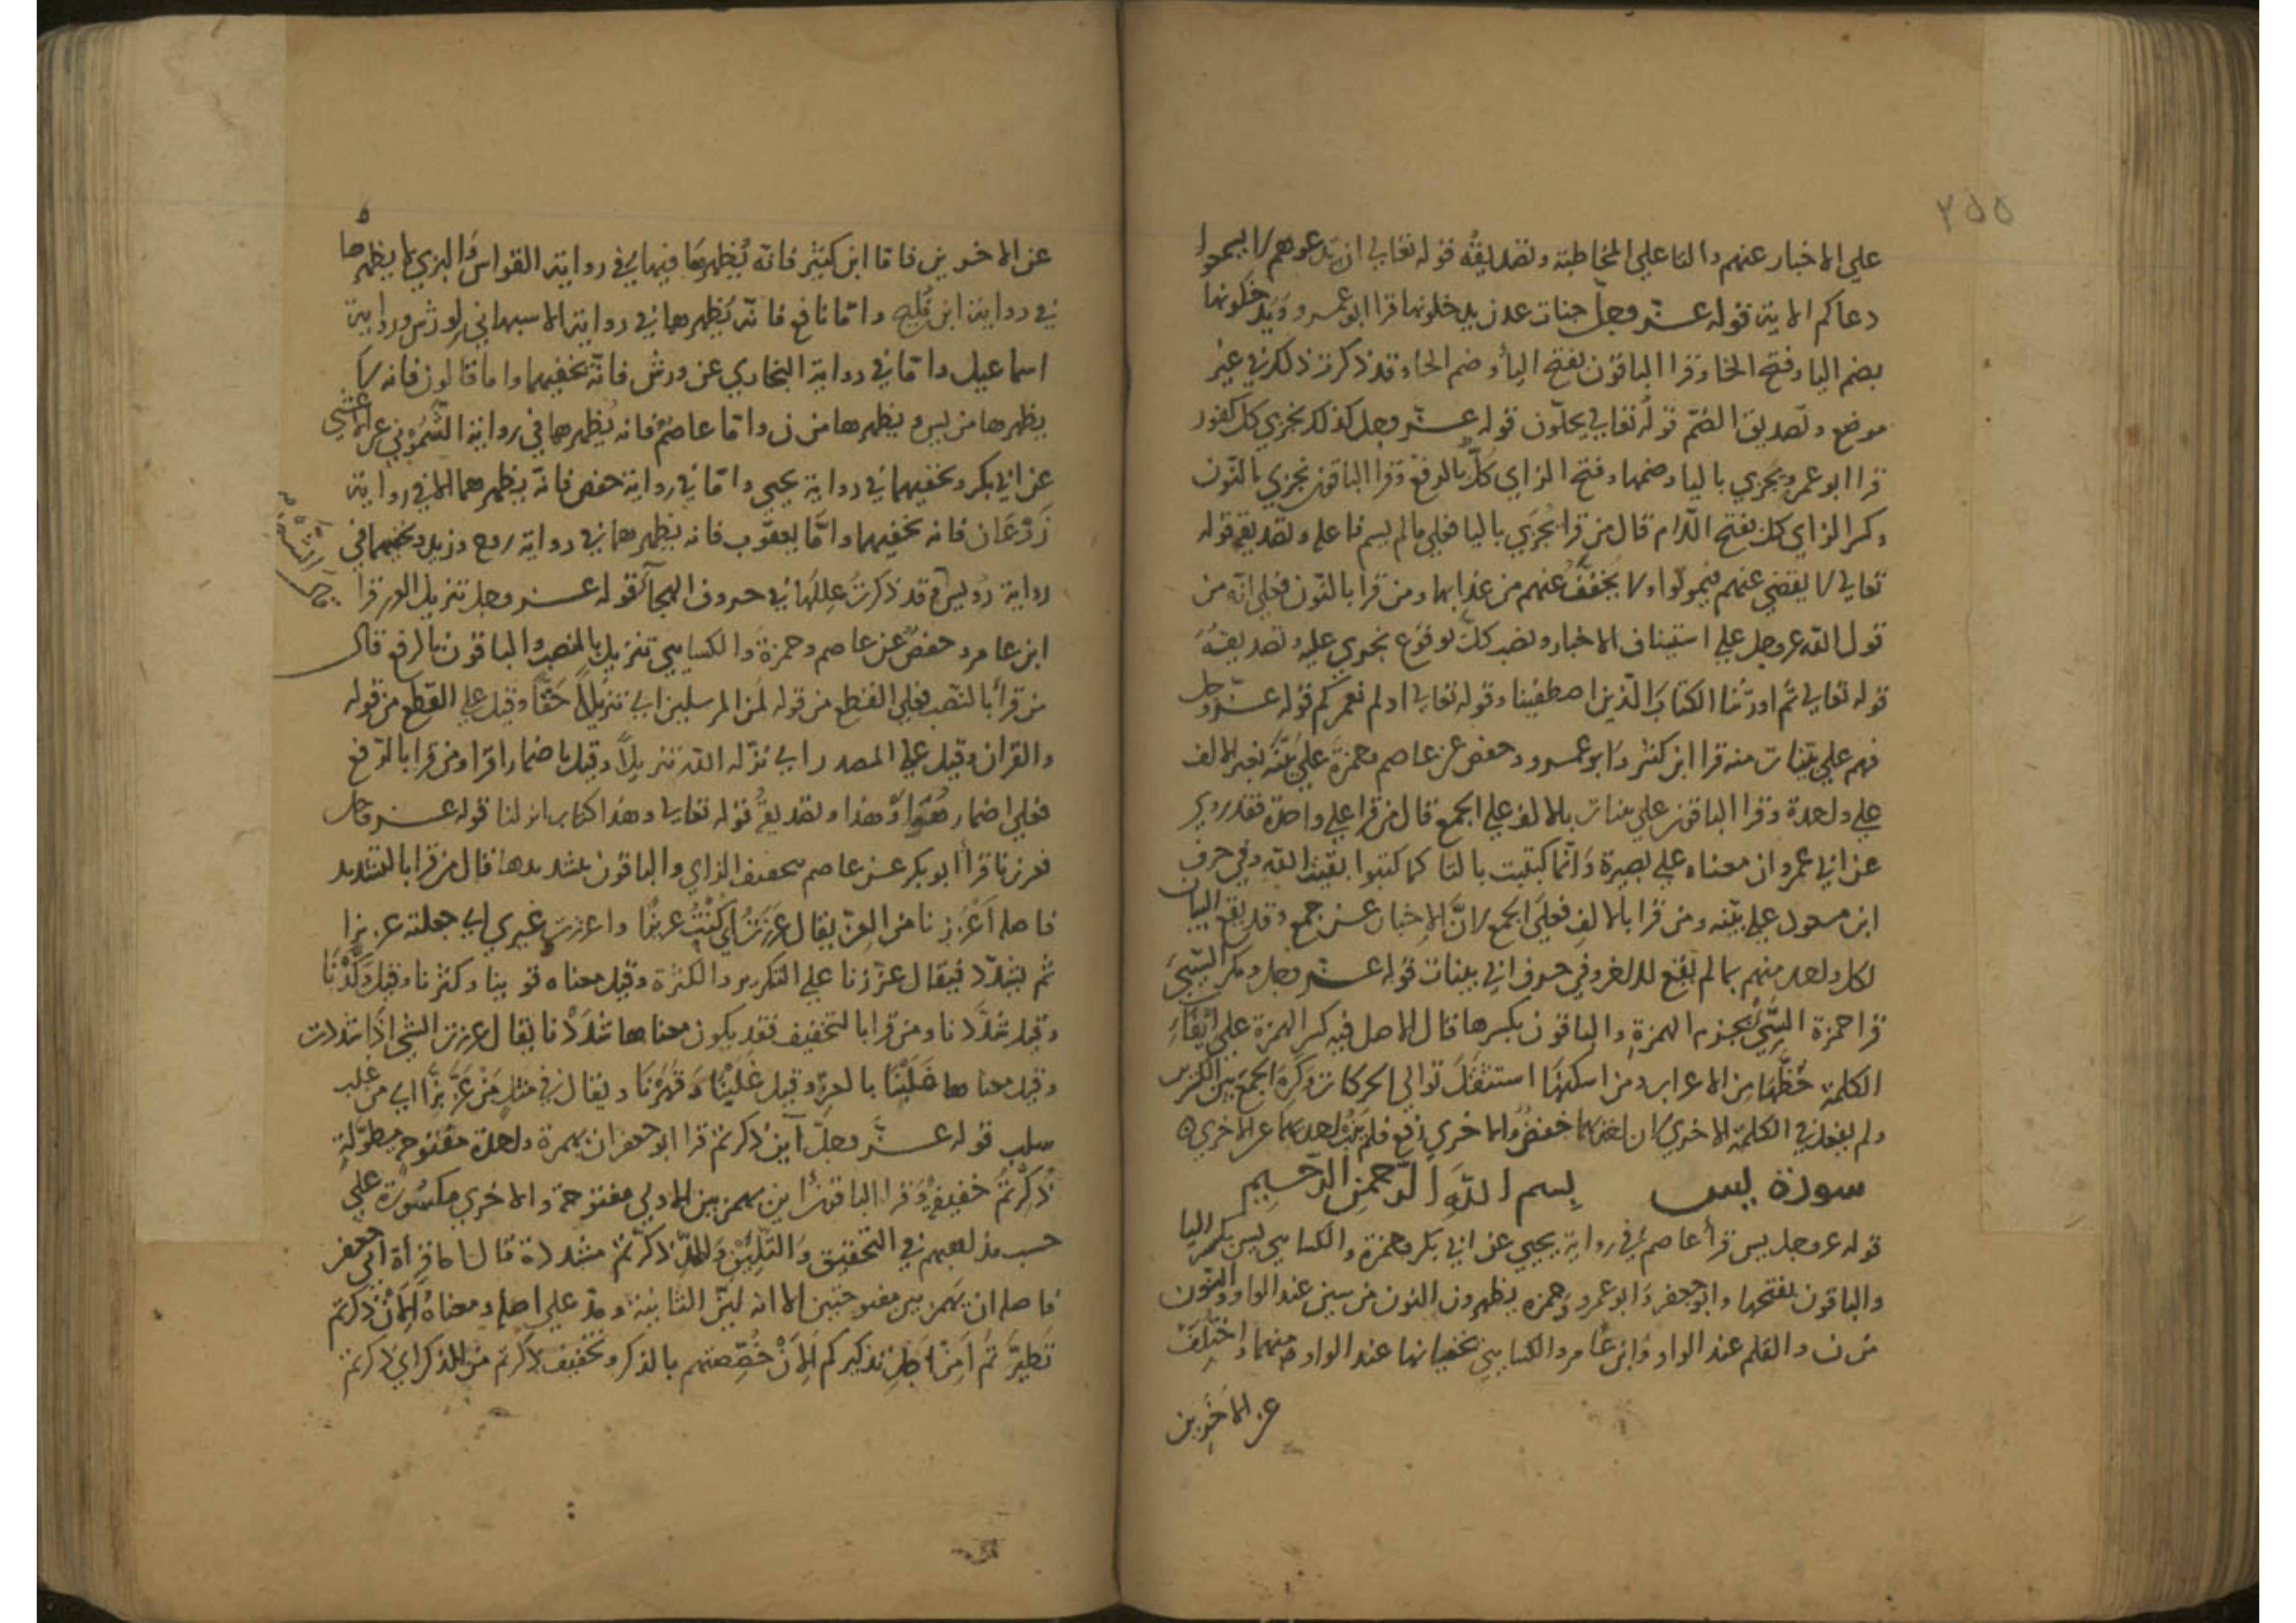 ٢٥٥
علي الاخبار عنهم والتا علي المخاطبة وتصديقه قوله تعالي ان تدعوهم لا يسمعوا
دعاكم الاية قوله عز وجل جنات عدن يدخلونها قرا ابو عمرو يُدخَلونها
بضم اليا وفتح الخا وقرا الباقون بفتح اليأ وضم الخا وقد ذكرت ذلك في غير
موضع وتصديق الضم قوله تعالي يحلّون قوله عزّ وجل كذلك نجزي كل كفور
قرا ابو عمرو يُجزي باليا وضمها وفتح الزاي كلُّ بالرفع وقرا الباقون نجزي بالنّون
وكسر الزاي كل بفتح اللّام قال من قرا يُجزَي باليا فعلي ما لم يسم فاعله وتصديقه قوله
تعالي لا يقضي عنهم فيموتوا ولا يُخفَّفُ عنهم من عذابها ومن قرا بالنّون فعلي انّه من
قول الله عز وجل علي استيناف الاخبار ونصب كلَّ لوقوع نجزي عليه وتصديقهُ
قوله تعالي ثُم اورثنا الكتابَ الّذين اصطفينا وقوله تعالي اولم نعمركم قوله عزّ وجل
فهم علي بيّنات منه قرا ابن كثير وابو عمرو وحفص عن عاصم وحمزة علي بيّنَه بغير الالف
علي واحدة وقرا الباقون علي بينات بالالف علي الجمع قال من قرا علي واحدة فقد روي
عن ابي عمرو ان معناه علي بصيرة وانّما كتبت بالتا كما كتبوا بقيت الله وفي حرف
ابن مسعود علي بيّنه ومن قرا بالالف فعلي الجمع لانّ الاخبار عن جمع وقد يقع البيان
لكل واحد منهم بما لم يقع للاخر وفي حرف ابي بينات قوله عزّ وجل ومكر السّيي
قرا حمزة السَّيّئْ بجزم الهمزة والباقون بكسرها قال الاصل فيه كسر الهمزة علي ايفاء
الكلمة حُظّهَا من الاعراب ومن اسكنها استثقل توالي الحركات وكره الجمع بين الكسرتين
ولم يفعل في الكلمة الاخري لان احداهما خفض والاخري رفع فلم ينب احدهما عن الاخري ٥
سورة يس بسم الله الرّحمن الرّحيم
قوله عز وجل يس قرأ عاصم في رواية يحيي عن ابي بكر وحمزة والكسايي يس بكسر اليا
والباقون بفتحها وابو جعفر وابو عمرو وحمزه يظهرون النون من سين عند الواو والنون
من ن والقلم عند الواو وابن عامر والكسايي يخفيانها عند الواو منهما واختلف
عن الاخرين
عن الاخرين فاما ابن كثير فانّه يُظهرهَا فيهما في رواية القواس والبزي لا يظهرها
في رواية ابن فُليح وامّا نافع فانّه يُظهرهما في رواية الاسبهاني لورش ورواية
اسماعيل وامّا في رواية البخاري عن ورش فانّه يخفيهما واما قالون فانه لا
يظهرها من يس ويظهرها من ن وامّا عاصم فانه يُظهرهما في رواية الشَّمُوني عن الاعشي
عن ابي بكر ويخفيهما في رواية يحيي وامّا في رواية حفص فانّه يظهرهما الا في رواية
زَرْعَان فانه يخفيهما وامّا يعقوب فانه يظهرهما في رواية روح وزيد ويخفيهما في
رواية رُويس وقد ذكرتُ عِللَها في حروف الهجآء قوله عز وجل تنزيل العزيز قرا
ابن عامر وحفصٌ عن عاصم وحمزةَ والكسايي تنزيل بالنصب والباقون بالرفع قال
من قرأ بالنّصب فعلي القطع من قوله لَمن المرسلين اي تنزيلًا حَقًّا وقيل علي القطع من قوله
والقران وقيل علي المصدر اي نزّله الله تنزيلًا وقيل باضمار اقرا ومن قرا بالرّفع
فعلي اضمار هُوَ اوْ هذا وتصديقُه قوله تعالي وهذا كتاب انزلنا قوله عز وجل
فعززنا قرأ ابو بكر عن عاصم بتخفيف الزاي والباقون بتشديدها قال من قرا بالتشديد
فاصله اَعْزَزنا من العِزّ يقال عَززتُ اي كُنْتُ عزيزًا واعززت غيري اي جعلته عزيزا
ثم يشدّد فيقال عزّزنا علي التكرير والكثرة وقيل معناه قوينا وكثرنا وقيل وَكَّدْنَا
وقيل شدَّدنا ومن قرا بالتخفيف فقد يكون معناها شدَدْنا يقال عززت الشي اذا شددت
وقيل معناها غلبْنَا بالعزّ وقيل غَلَبْنَا وقهَرْنَا ويقال في مثل مَنْ عَزَّ بَزَّ اي من غلب
سلب قوله عزّ وجلّ آين ذكرتم قرا ابو جعفر ان بهمزة واحدة مفتوحة مطوّلة
ذُكِرْتُم خفيفة وقرا الباقون أاين بهمزتين الاولي مفتوحة والاخري مكسُورة علي
حسب مذاهبهم في التحقيق والتّليين والمدّ ذكّرتم مشددة قال اما قرأة ابي جعفر
فاصله ان بهمزتين مفتوحتين الا انه ليّن الثانية ومدّ علي اصله ومعناهُ اَلِاَنْ ذكرتم
تَطيَّرتُم اَمِنْ اجل تذكيركم اَلِاَنْ خُصّصتم بالذكر وتخفيف ذكرتم من الذكر اي ذكرتم